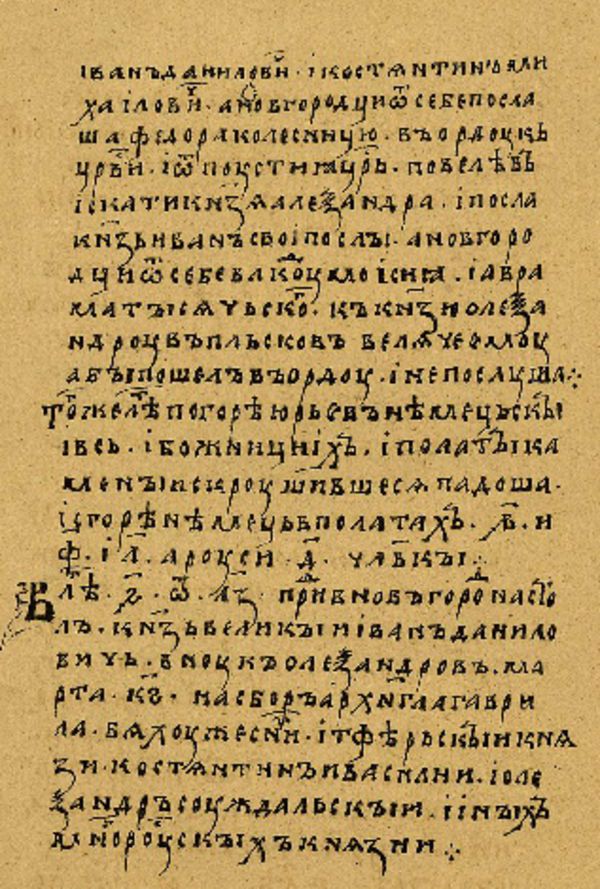 іванъ данилови · і костѧнтинъ ми
хаілови · а новгородци ѿ себе посла
ша федора колесницю · въ ордоу къ
цр҃ви · і ѿпоусти ꙗ цр҃ь · повелѣвъ
іскати кн҃зѧ алеѯандра · і посла
кн҃зь иванъ своі послы · а новгоро
дци ѿ себе влкⷣоу моісиꙗ · і авра
ма тысѧчьскоⷢ · къ кн҃зю олеѯа
ндроу въ пльсковъ велѧче ємоу
абы пошелъ въ ордоу · і не послуша ⁘
тоⷢже лѣⷮ погорѣ юрьевъ нѣмецьскыі
івсь · і божници іхъ · і полаты ка
менъіи скроушившесѧ падоша ·
ізгорѣ нѣмець в полатахъ · ҂в҃ · и
ф҃ · і л҃ · а роуси · д҃ · члв҃кы ⁘
В лѣⷮ · ҂ѕ҃ · ѡ҃ · л҃з · приⷣ в новъгороⷣ на сто
лъ · кн҃зь великыи іванъ данило
вичь · вноукъ олеѯандровъ · ма
рта · к҃ѕ · на сборъ архнг҃ла гаври
ла · бѧхоу же с ниⷨ · і тфѣрьскыи кнѧ
зи · костѧнтинъ и василии · і оле
ѯандръ соуждальскыи · і іныхъ
мноⷢ роускыхъ кнѧзии ⁘